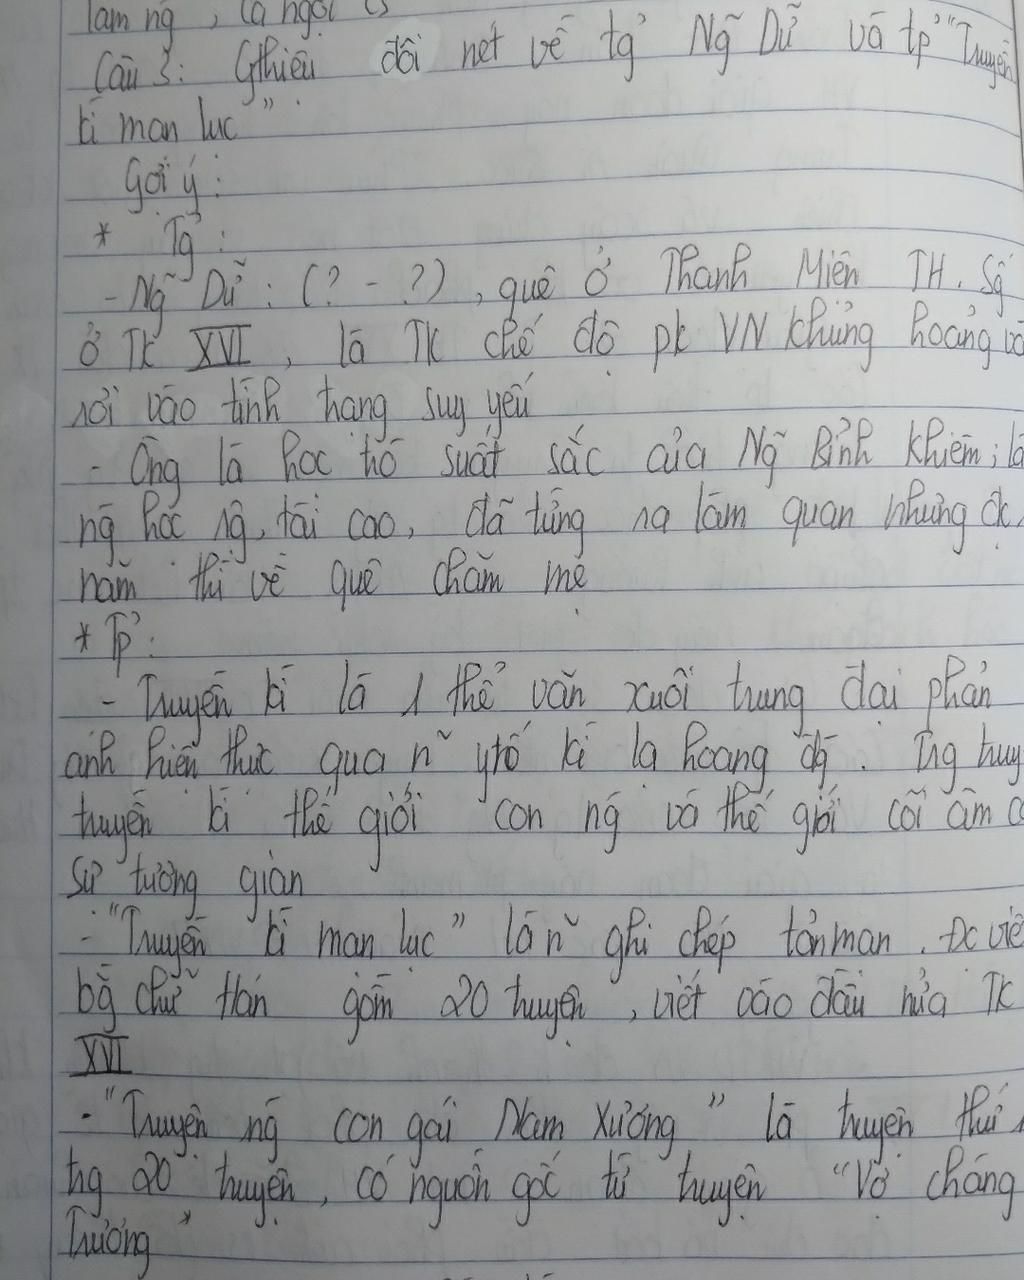 làm ng, là ngôi
Câu 3: Gthiệu đôi nét về tg̉ Ng̃ Dữ và tp̉ "Truyền
kì mạn lục".
Gợi ý:
* Tg̉:
- Ng̃ Dữ: (? - ?), quê ở Thanh Miện TH. Sg
ở TK XVI, là TK chế độ pk VN khủng hoảng và
rơi vào tình trạng suy yếu
- Ông là học trò suất sắc của Ng̃ Bỉnh Khiêm; là
ng̀ học rộ, tài cao, đã từng ra làm quan nhưng đc
năm thì về quê chăm mẹ
* Tp̉:
- Truyền kì là 1 thể văn xuôi trung đại phản
ánh hiện thực qua n~ ytố kì lạ hoang đg. Trg truy
truyền kì thế giới con ng̀ và thế giới cõi âm có
sự tương giàn
- "Truyền kì mạn lục" là n~ ghi chép tản mạn. Đc viế
bg̀ chữ Hán gồm 20 truyện, viết vào đầu nửa TK
XVI
- "Truyện ng̀ con gái Nam Xương" là truyện thứ
trg 20 truyện, có nguồn gốc từ truyện "Vợ chàng
Trương"